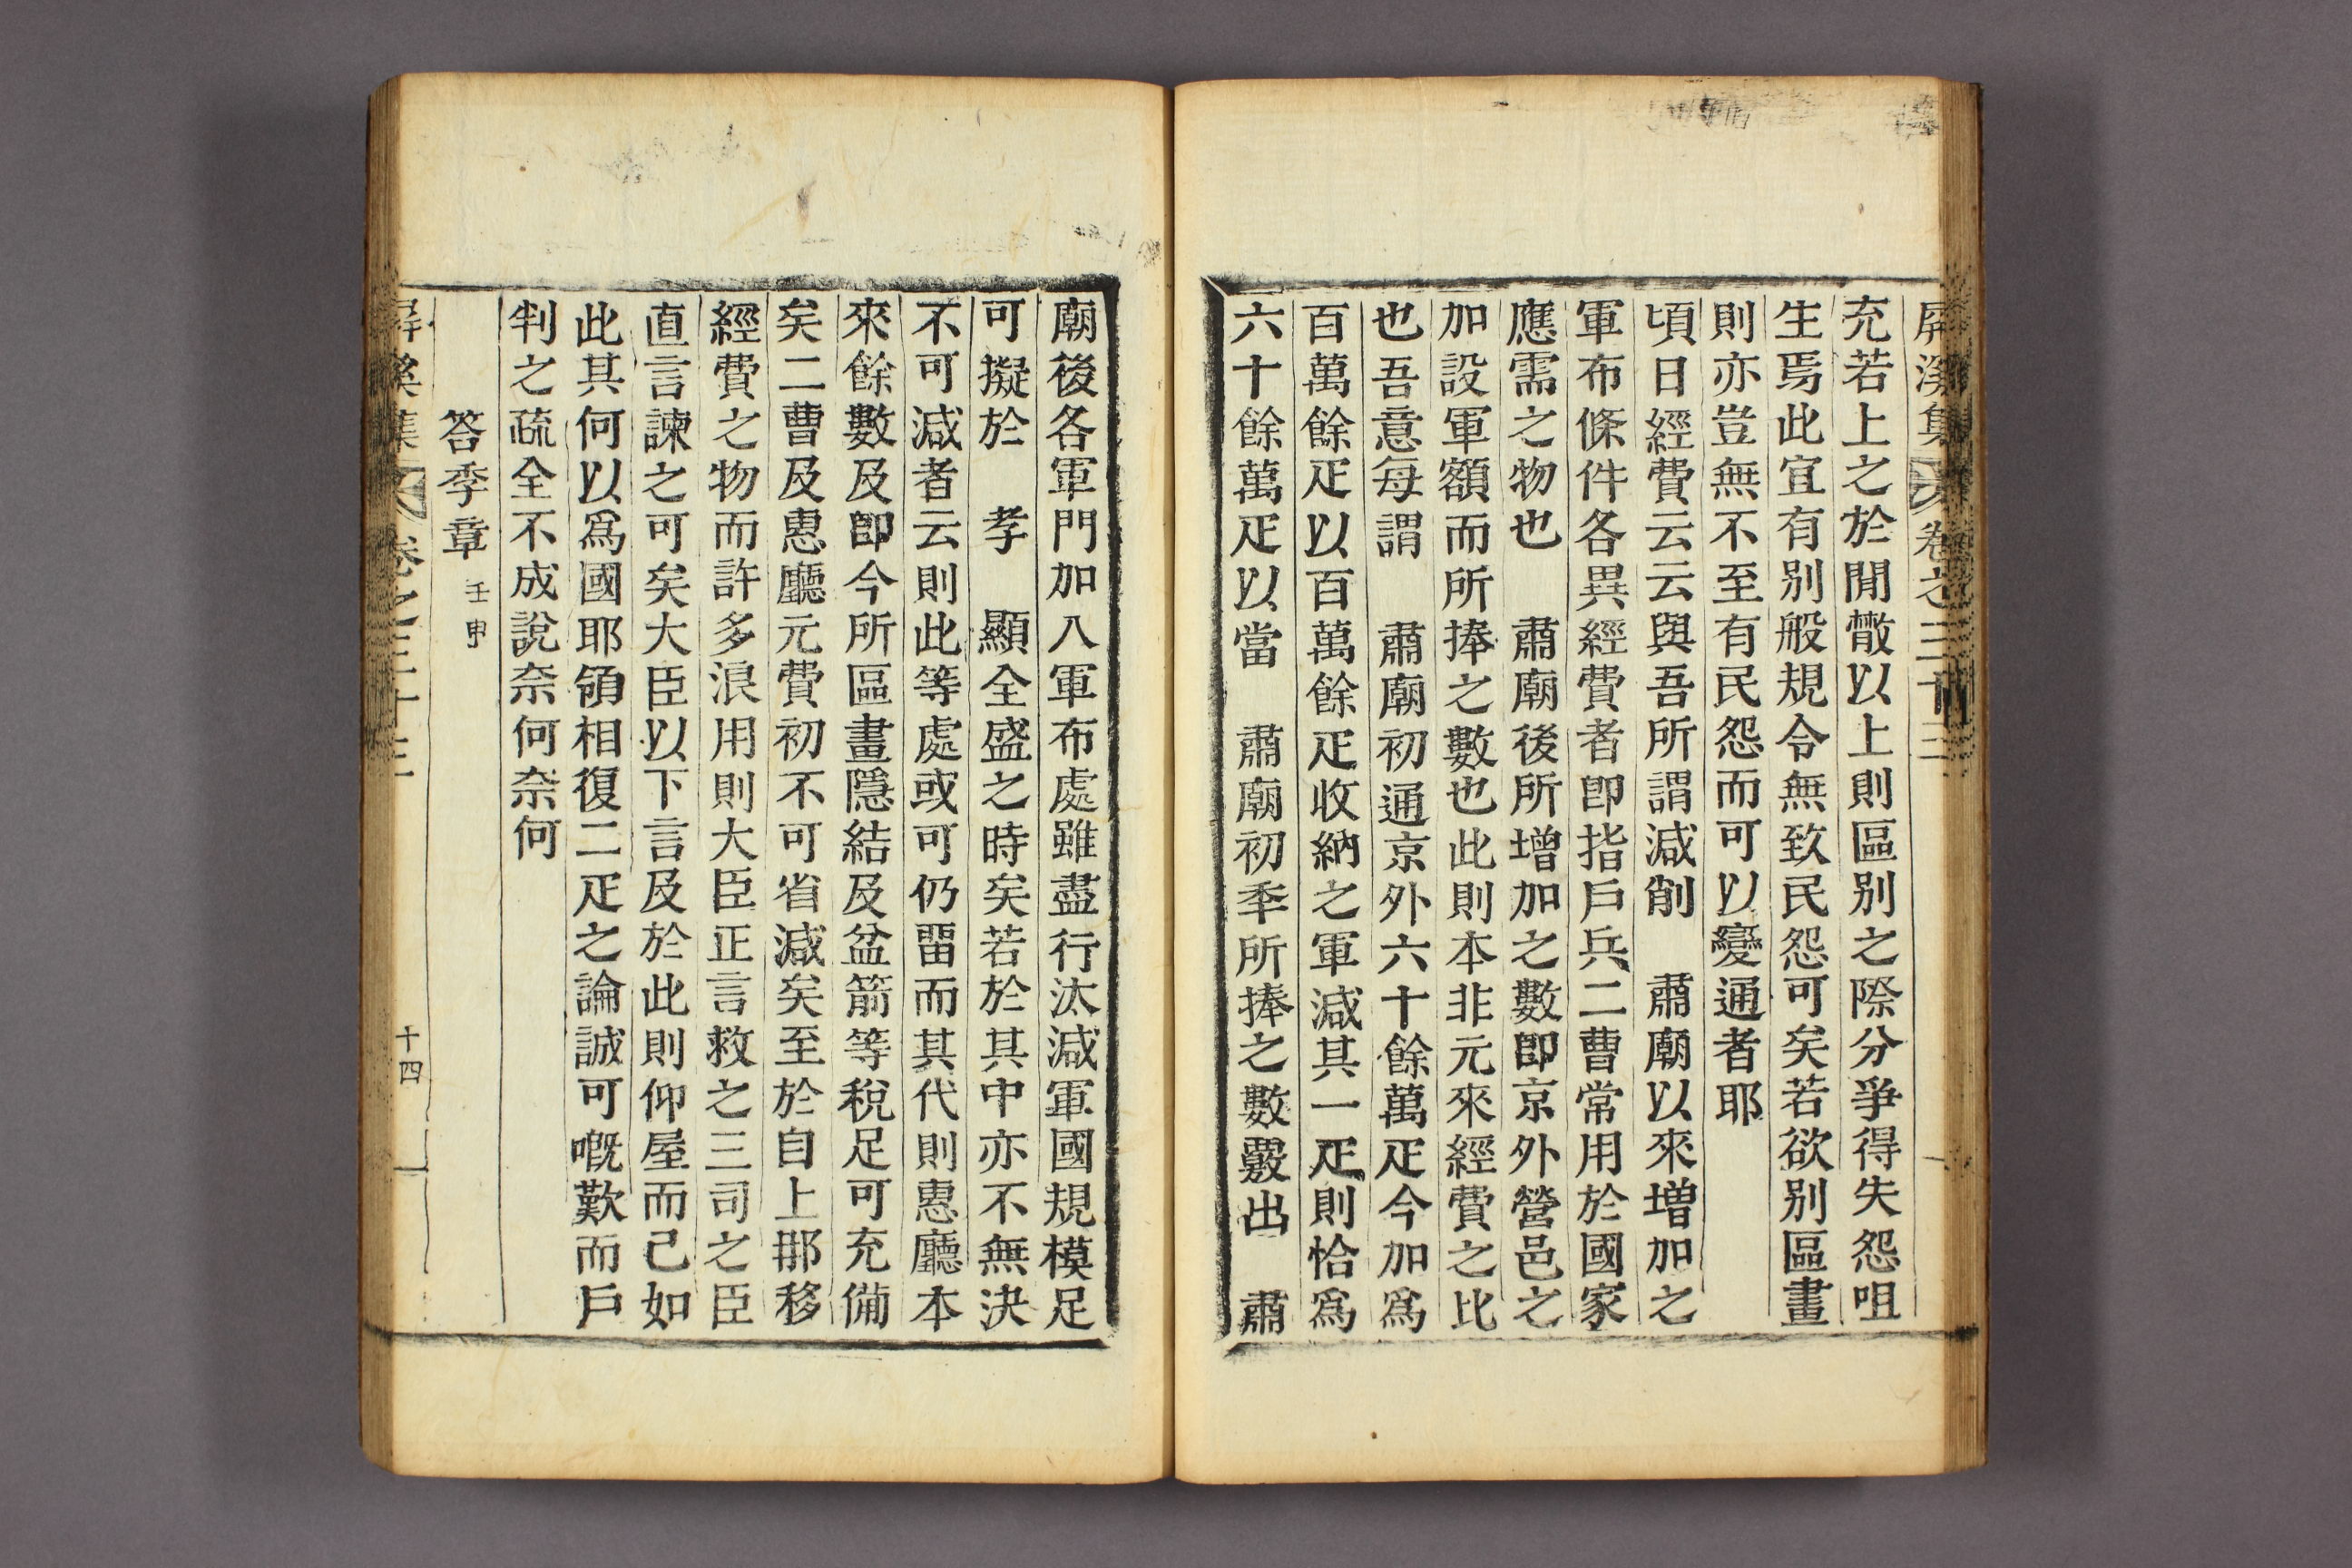 屛溪集 卷之三十三
充若上之於閒㪚以上則區别之際分爭得失怨咀
生焉此宜有别般規令無致民怨可矣若欲别區畫
則亦豈無不至有民怨而可以變通者耶
頃日經費云云與吾所謂減削 肅廟以來増加之
軍布條件各異經費者卽指戶兵二曹常用於國家
應需之物也 肅廟後所增加之數卽京外營邑之
加設軍額而所捧之數也此則本非元來經費之比
也吾意每謂 肅廟初通京外六十餘萬疋今加爲
百萬餘疋以百萬餘疋收納之軍減其一疋則恰爲
六十餘萬疋以當 肅廟初年所捧之數覈出 肅
廟後各軍門加八軍布處雖盡行汰減軍國規模足
可擬於 孝 顯全盛之時矣若於其中亦不無決
不可減者云則此等處或可仍留而其代則惠廳本
來餘數及卽今所區畫隱結及盆箭等稅足可充備
矣二曹及惠廳元費初不可省減矣至於自上那移
經費之物而許多浪用則大臣正言救之三司之臣
直言諫之可矣大臣以下言及於此則仰屋而已如
此其何以爲國耶領相復二疋之論誠可嘅歎而戶
判之疏全不成說奈何奈何
答季章 壬申
屛溪集 卷之三十三 十四